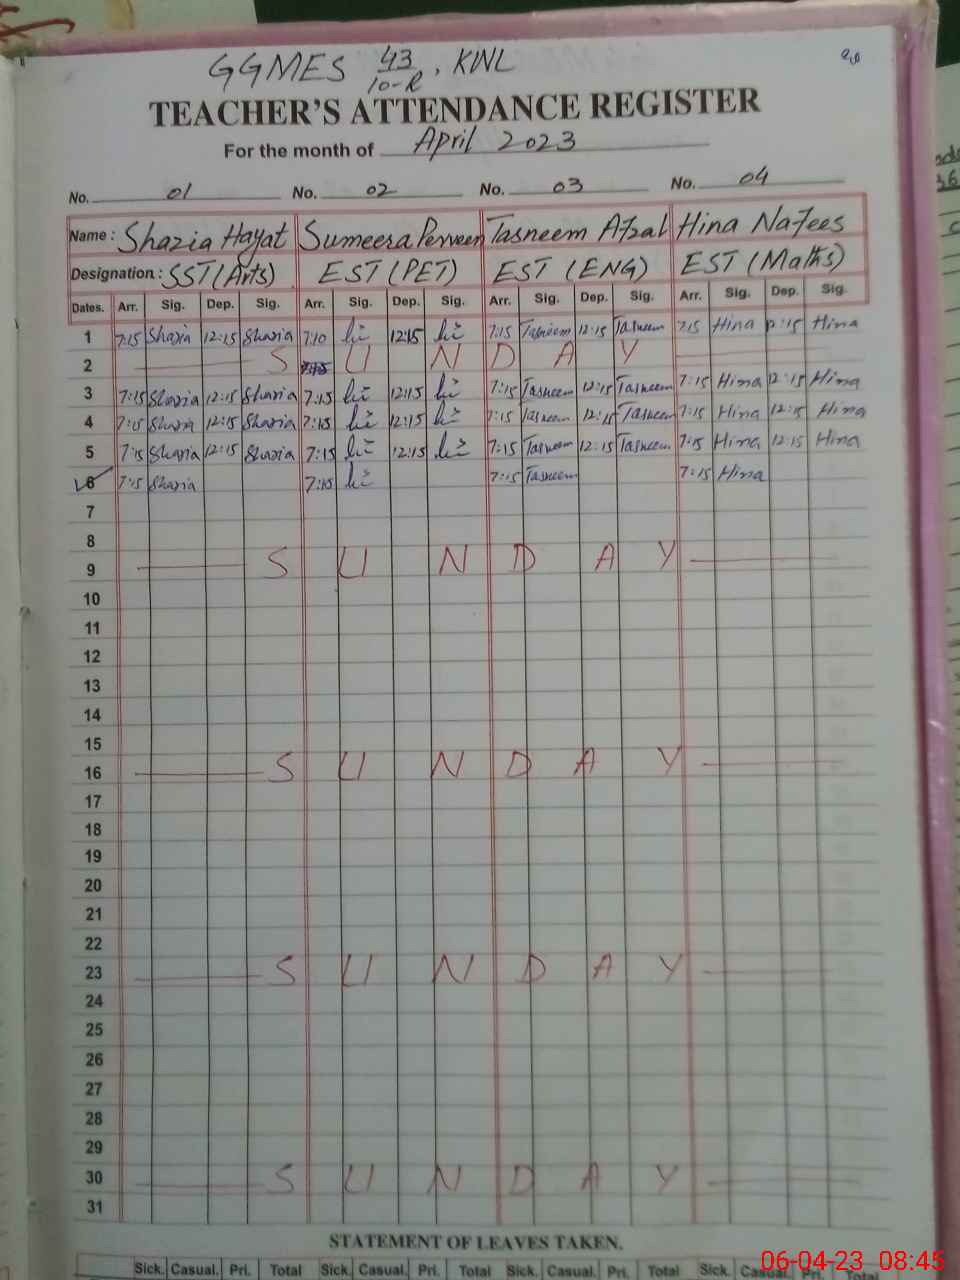 GGMES 43/10-R, KWL
TEACHER'S ATTENDANCE REGISTER
For the month of April 2023
No. 01 No. 02 No. 03 No. 04
Name: Shazia Hayat Sumeera Perveen Tasneem Afzal Hina Nafees
Designation: SST (Arts) EST (PET) EST (ENG) EST (Maths)
Dates. Arr. Sig. Dep. Sig. Arr. Sig. Dep. Sig. Arr. Sig. Dep. Sig. Arr. Sig. Dep. Sig.
1 7:15 Shazia 12:15 Shazia 7:10 12:15 7:15 Tasneem 12:15 Tasneem 7:15 Hina 12:15 Hina
2 S U N D A Y
3 7:15 Shazia 12:15 Shazia 7:15 12:15 7:15 Tasneem 12:15 Tasneem 7:15 Hina 12:15 Hina
4 7:15 Shazia 12:15 Shazia 7:15 12:15 7:15 Tasneem 12:15 Tasneem 7:15 Hina 12:15 Hina
5 7:15 Shazia 12:15 Shazia 7:15 12:15 7:15 Tasneem 12:15 Tasneem 7:15 Hina 12:15 Hina
6 7:15 Shazia 7:15 7:15 Tasneem 7:15 Hina
7
8
9 S U N D A Y
10
11
12
13
14
15
16 S U N D A Y
17
18
19
20
21
22
23 S U N D A Y
24
25
26
27
28
29
30 S U N D A Y
31
STATEMENT OF LEAVES TAKEN.
Sick. Casual. Pri. Total Sick. Casual. Pri. Total Sick. Casual. Pri. Total Sick. Casual. Pri. Total
06-04-23 08:45